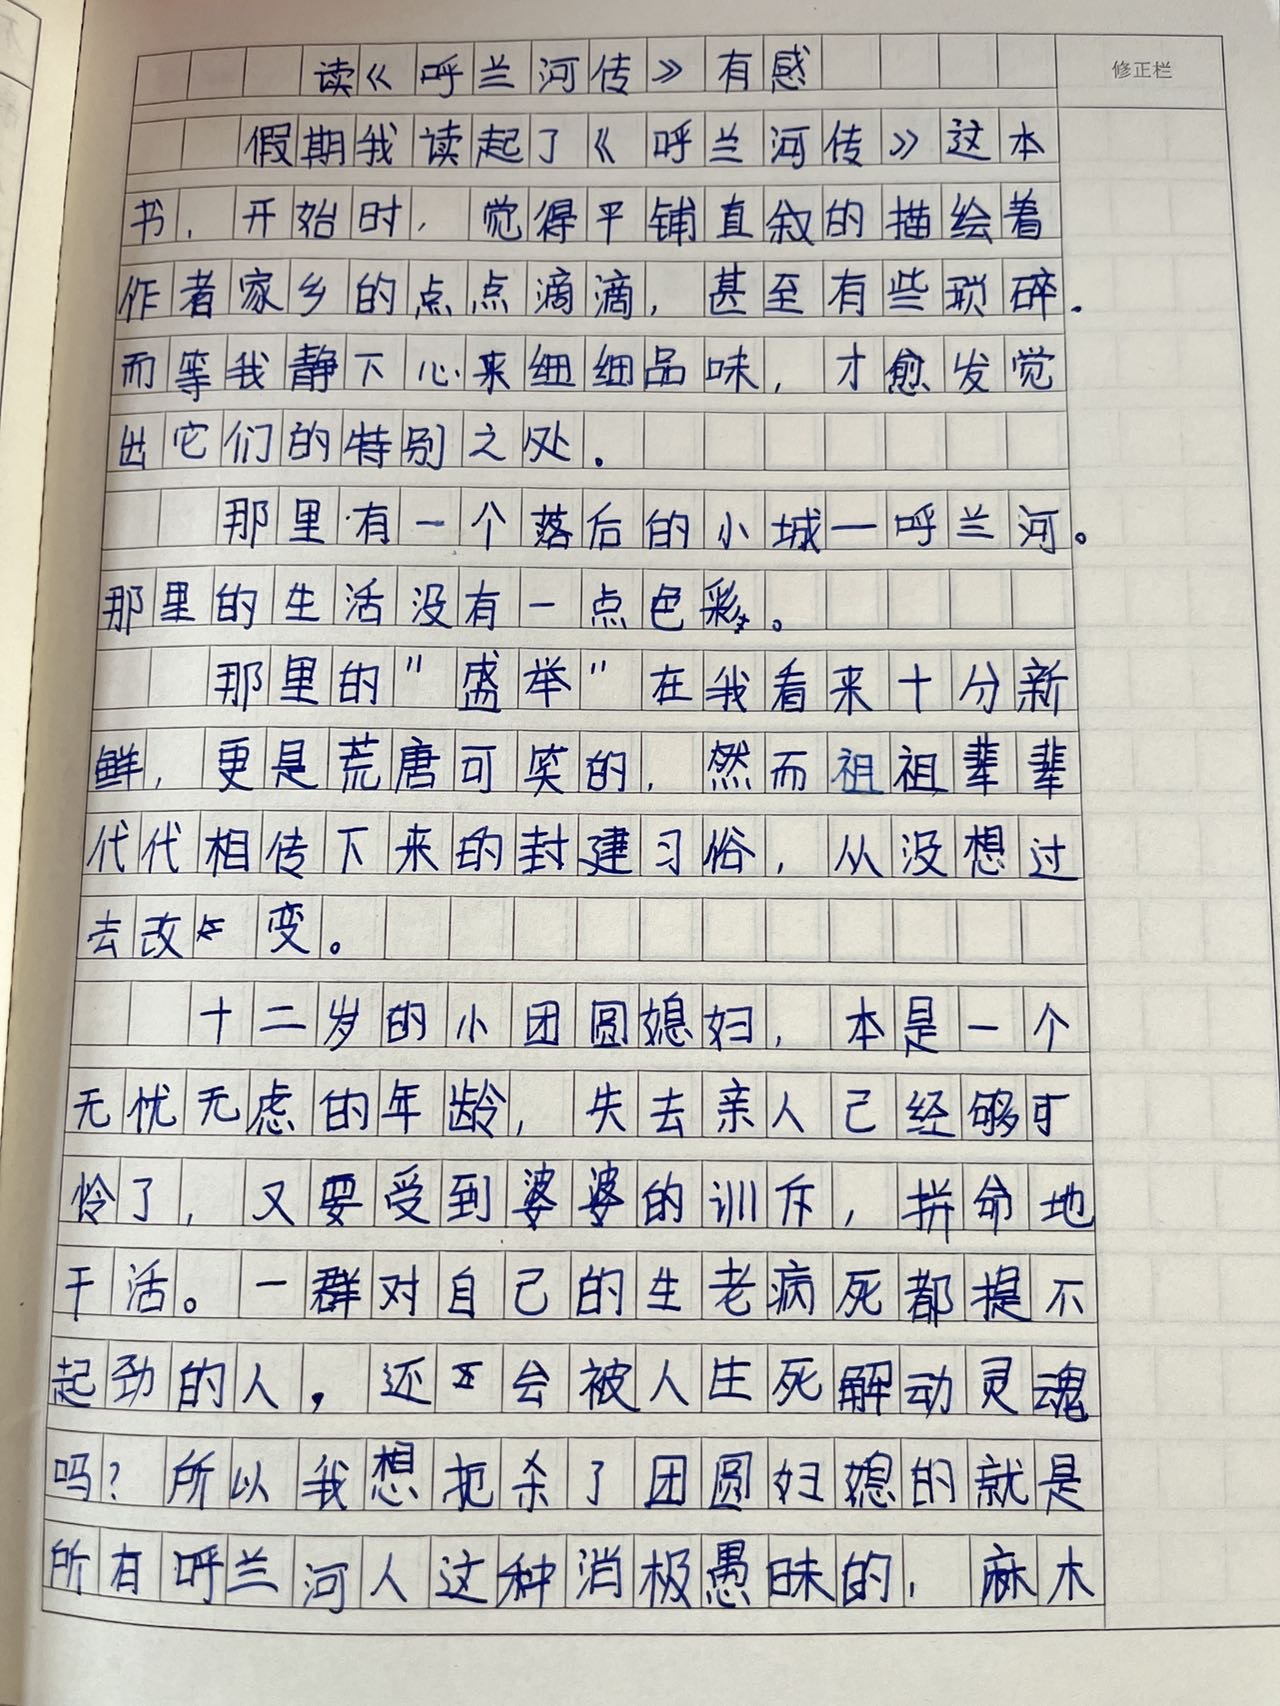 修正栏
读《呼兰河传》有感
假期我读起了《呼兰河传》这本
书，开始时，觉得平铺直叙的描绘着
作者家乡的点点滴滴，甚至有些琐碎．
而等我静下心来细细品味，才愈发觉
出它们的特别之处．
那里有一个落后的小城—呼兰河。
那里的生活没有一点色彩。
那里的"盛举"在我看来十分新
鲜，更是荒唐可笑的，然而祖祖辈辈
代代相传下来的封建习俗，从没想过
去改变。
十二岁的小团圆媳妇，本是一个
无忧无虑的年龄，失去亲人已经够可
怜了，又要受到婆婆的训斥，拼命地
干活。一群对自己的生老病死都提不
起劲的人，还会被人生死解动灵魂
吗？所以我想扼杀了团圆妇媳的就是
所有呼兰河人这种消极愚昧的，麻木